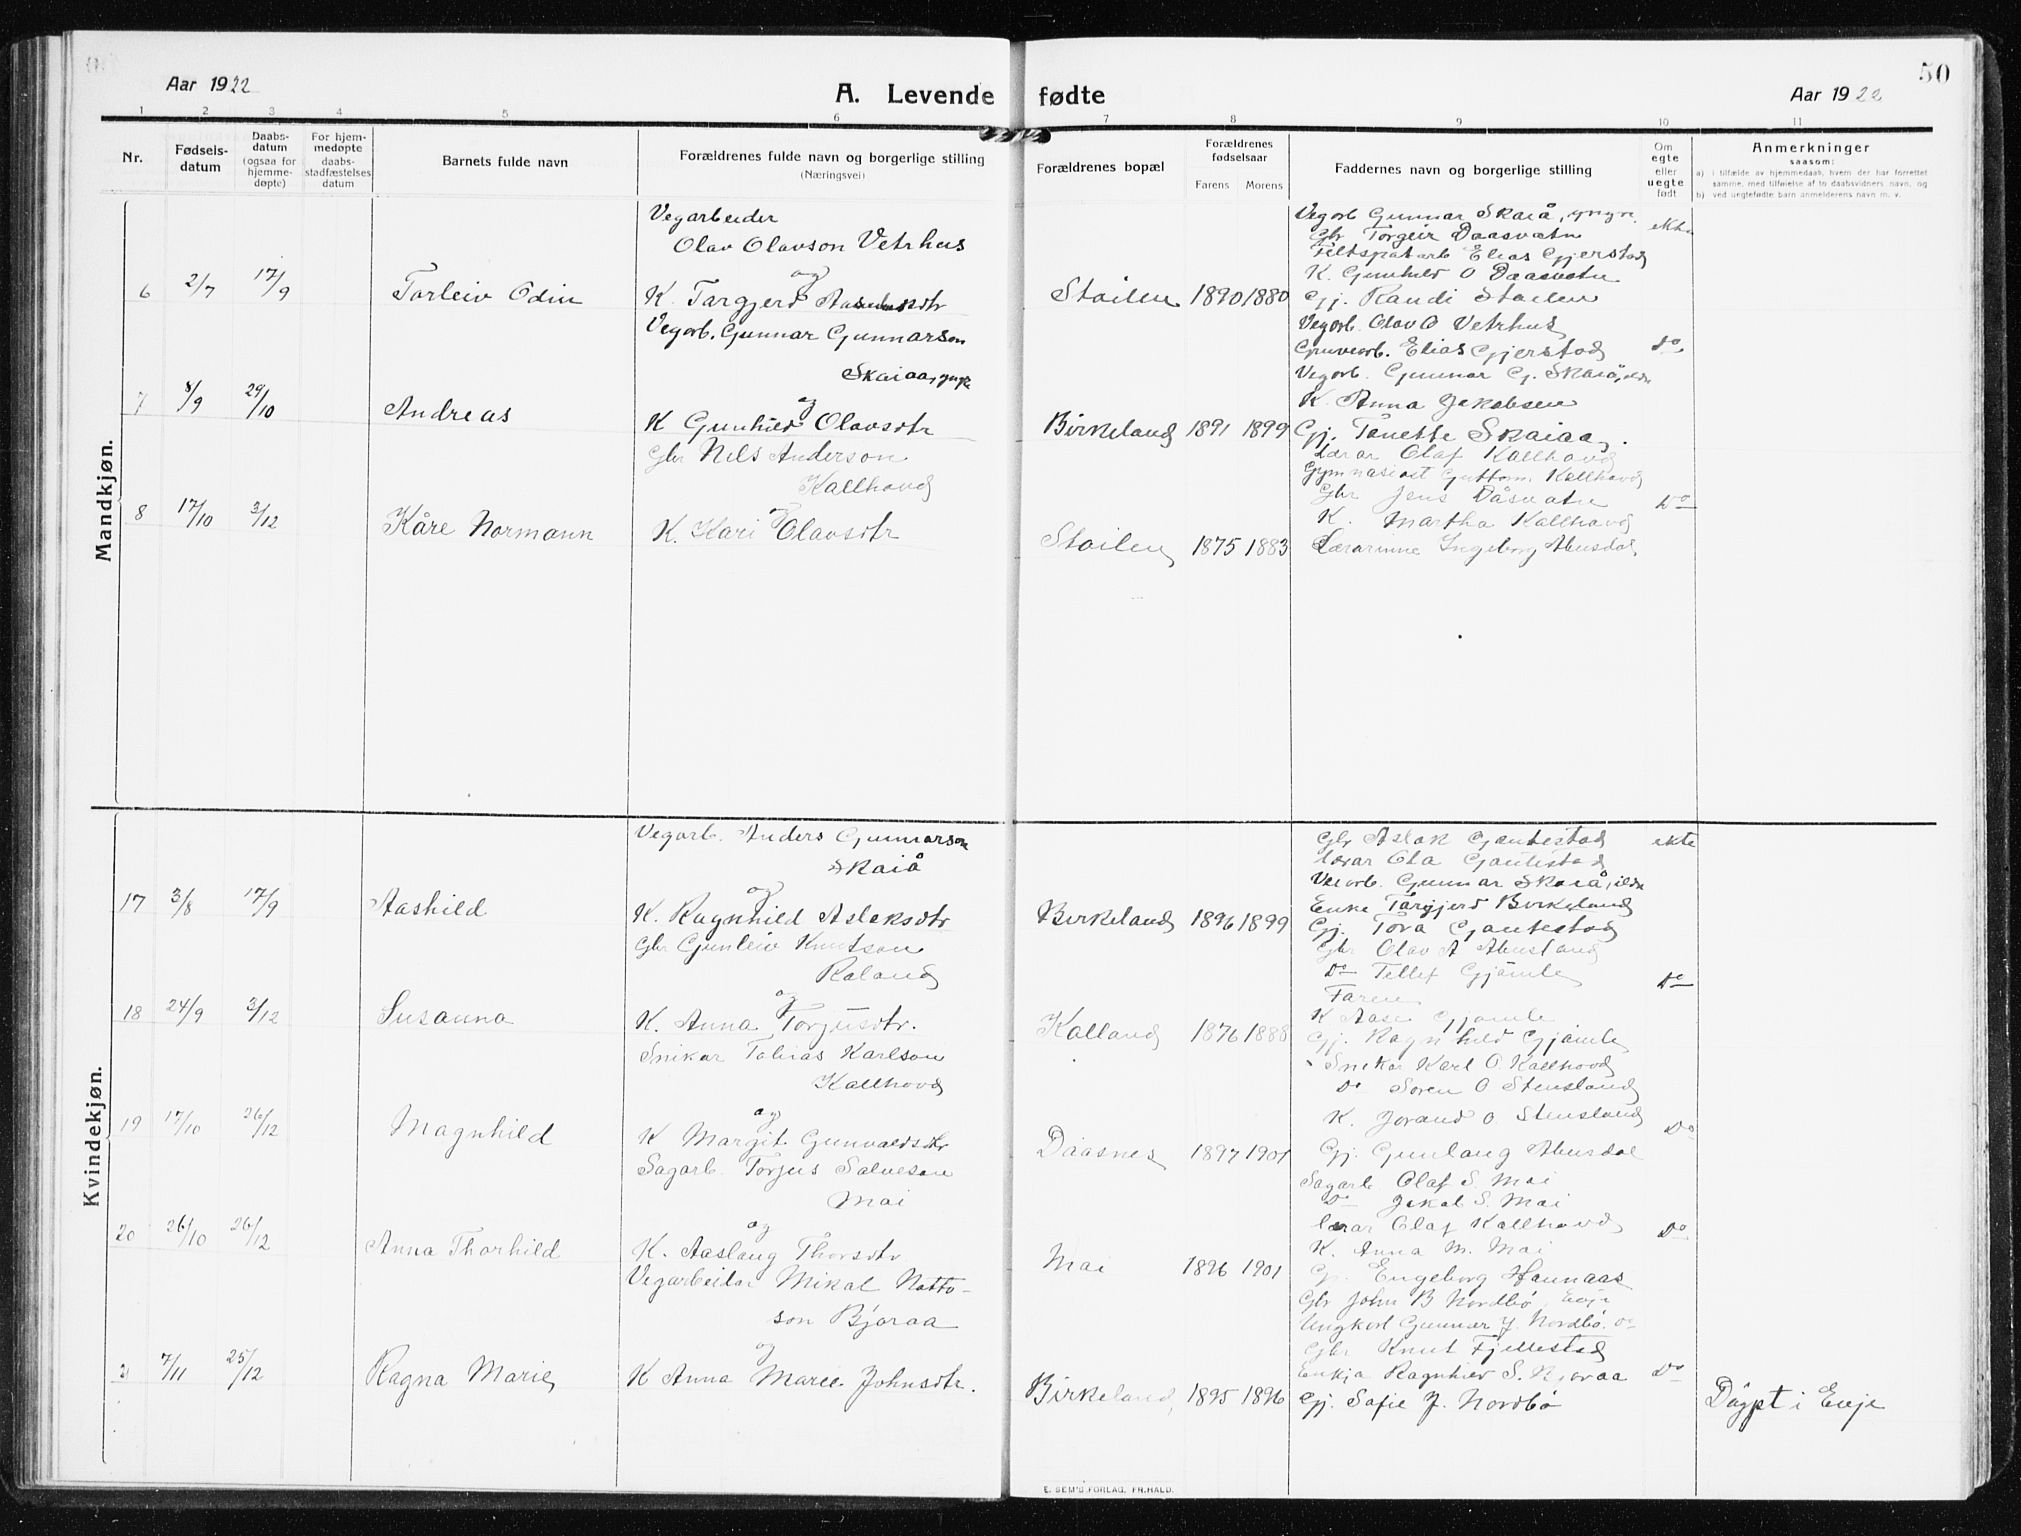 Aar 1922
A. Levende fødte
Aar 1922
50
1 2 3 4 5 6 7 8 9 10 11
Nr.
Fødsels-
datum
Daabs-
datum
(ogsaa for
hjemme-
døpte)
For hjem-
medøpte
daabs-
stadfæstelses
datum
Barnets fulde navn
Forældrenes fulde navn og borgerlige stilling
(Næringsvei)
Forældrenes bopæl
Forældrenes
fødselsaar
Farens Morens
Faddernes navn og borgerlige stilling
Om
egte
eller
uegte
født
Anmerkninger
saasom:
a) i tilfælde av hjemmedaab, hvem der har forrettet
samme, med tilføielse af to daabsvidners navn, og
b) ved uegtefødte barn anmelderens navn m. v.
Mandkjøn.
6 2/7 17/9 Torleiv Odin
Vegarbeider
Olav Olavson Vetrhus
og
K. Targjerd
Stoilen 1890 1880
Vegarb Gunnar Skaiå, yngre.
Gbr Torgeir Daasvatn
Feltspatarb Elias Gjerstad
K. Gunhild O Daasvatn
Gj. Randi Stoilen
ekte
7 8/9 29/10 Andreas
Vegarb. Gunnar Gunnarson
Skaiaa, yngre
og
K Gunhild Olavsdtr
Birkeland 1891 1899
Vegarb. Olav O Vetrhus
Gruvearb. Elias Gjerstad
Vegarb. Gunnar G. Skaiå, eldre
K. Anna Jakobsen
Gj. Tonette Skaiaa.
do
8 17/10 3/12 Kåre Normann
Gbr Nils Anderson
Kallhovd
og
K. Kari Olavsdtr
Stoilen 1875 1883
Lærar Olaf Kallhovd
Gymnasiast Guttorm Kallhovd
Gbr Jens Dåsvatn
K. Martha Kallhovd
Lærarinne Ingeborg Abusdal
Do
Kvindekjøn.
17 3/8 17/9 Aashild
Vegarb. Anders Gunnarson
Skaiå
og
K. Ragnhild Aslaksdtr
Birkeland 1896 1899
Gbr Aslak Gautestad
Lærar Ola Gautestad
Vegarb. Gunnar Skaiå, eldre
Enke Targjerd Birkeland
Gj. Tora Gautestad
ekte
18 24/9 3/12 Susanna
Gbr Gunleiv Knutson
Røland
og
K. Anna Torjusdtr.
Kalland 1876 1888
Gbr Olav A Abusland
Do Tellef Gjømle
Faren
K Aase Gjømle
Gj. Ragnhild Gjømle
Do
19 17/10 26/12 Magnhild
Snikar Tobias Karlson
Kallhovd
og
K Margit Gunvaldsdtr
Daasnes 1897 1901
Snikar Karl O. Kallhovd
Do Soren O Stensland
K. Jorand O. Stensland
Gj. Gunlaug Abusdal
Do
20 26/10 26/12 Anna Thorhild
Sagarb. Torjus Salveson
Mai
og
K. Aaslaug Thorsdtr
Mai 1896 1901
Sagarb Olaf S. Mai
Do Jakob S. Mai
Lærar Olaf Kallhovd
K. Anna M. Mai
Gj. Engeborg Hannaas
Do
21 7/11 25/12 Ragna Marie
Vegarbeidar Mikal Notto-
son Bjoraa
og
K Anna Marie Johnsdtr.
Birkeland, 1895 1896
Gbr John B Nordbø, Evje
Ungkarl Gunnar J. Nordbø, do
Gbr Knut Fjellestad
Enkja Ragnhild S. Bjoraa
Gj. Sofie J. Nordbø
Do
Døypt i Evje
E. SEM'S FORLAG, FR.HALD.